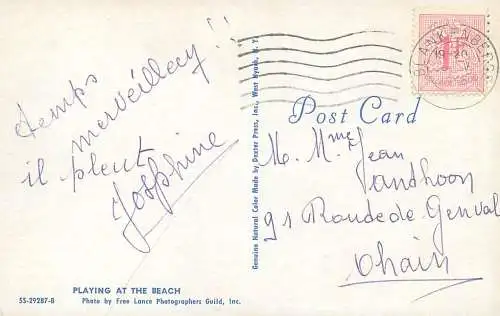 temps
merveilleux!!
il pleut
Josphine
PLAYING AT THE BEACH
SS-29287-B
Photo by Free Lance Photographers Guild, Inc.
Genuine Natural Color Made by Dexter Press, Inc., West Nyack, N. Y.
BLANKENBERGE
19-20
1F
Post Card
M. Mme Jean
Vandhoon
91 Route de Genval
Ohain